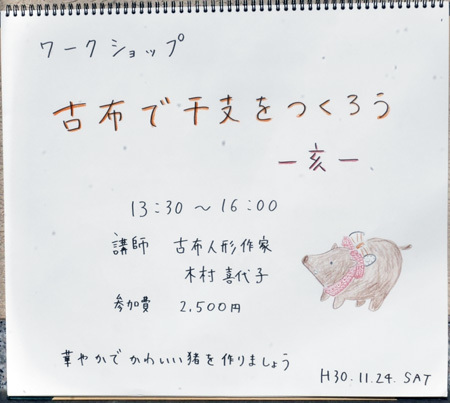 ワークショップ
古布で干支をつくろう
ー亥ー
13:30～16:00
講師 古布人形作家
木村喜代子
参加費 2,500円
華やかでかわいい猪を作りましょう
H30.11.24. SAT